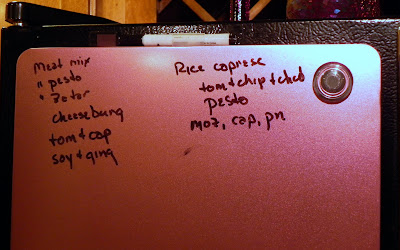 Meat mix
" pesto
" Zatar
cheeseburg
tom + cap
soy + ging
Rice caprese
tom + chip + ched
pesto
moz, cap, pn